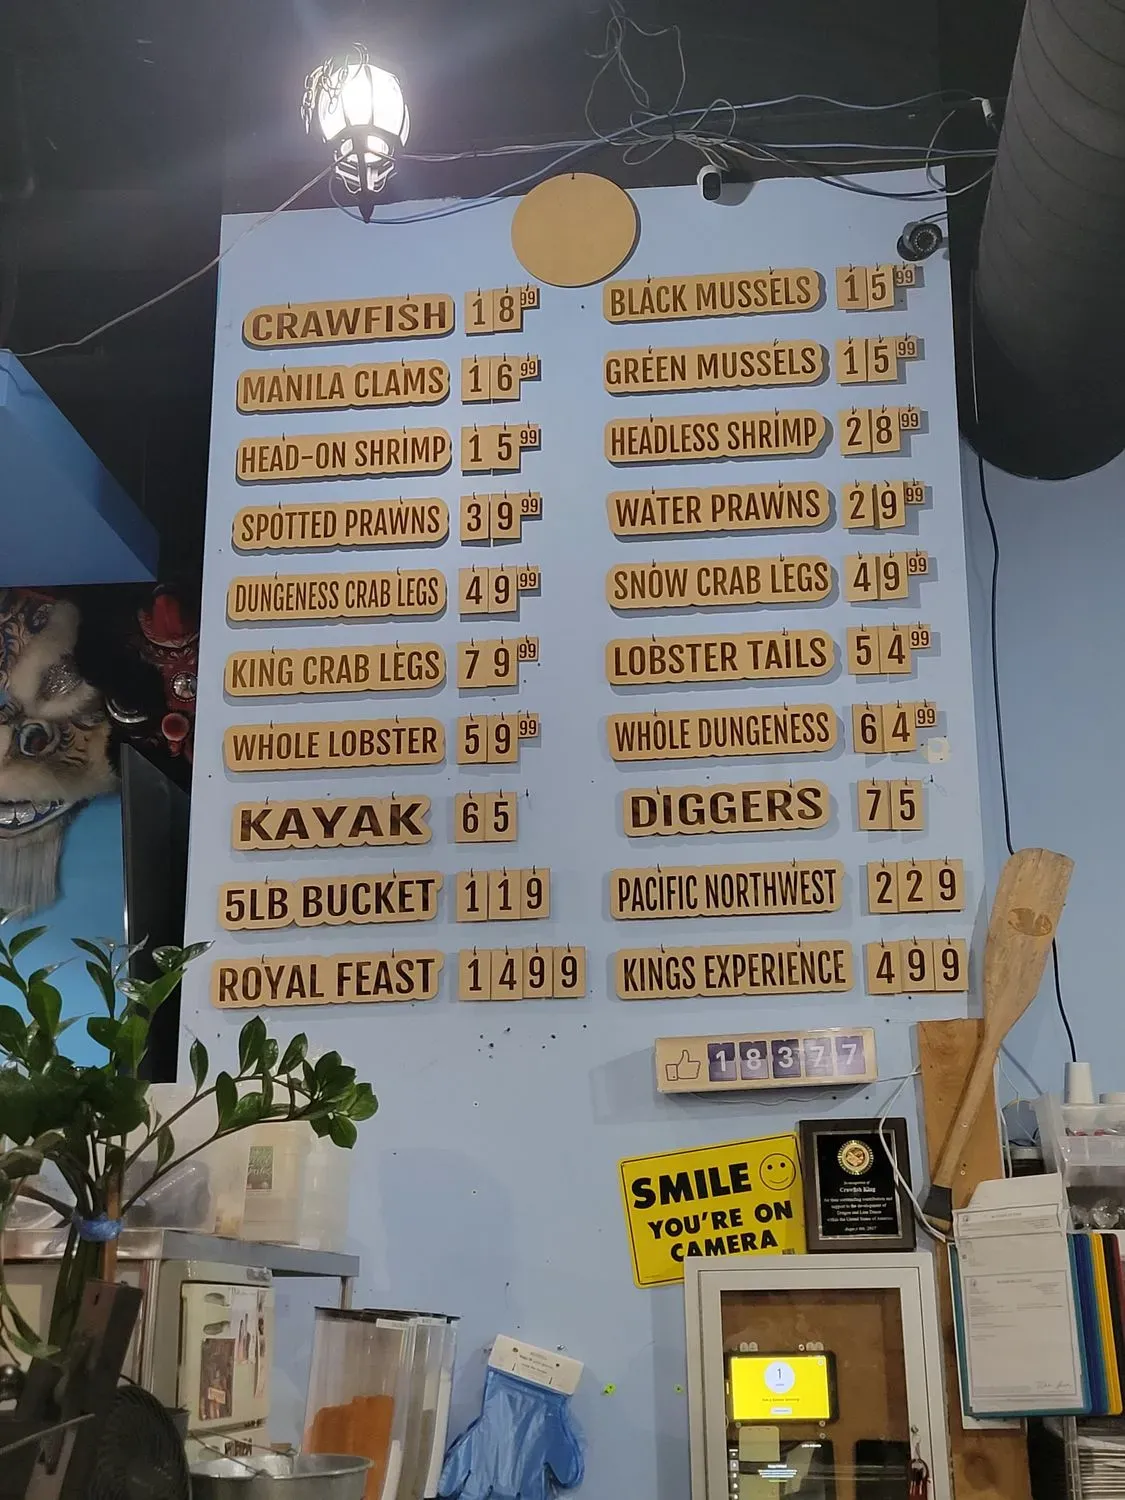 CRAWFISH 18 99
MANILA CLAMS 16 99
HEAD-ON SHRIMP 15 99
SPOTTED PRAWNS 39 99
DUNGENESS CRAB LEGS 49 99
KING CRAB LEGS 79 99
WHOLE LOBSTER 59 99
KAYAK 65
5LB BUCKET 119
ROYAL FEAST 1499
BLACK MUSSELS 15 99
GREEN MUSSELS 15 99
HEADLESS SHRIMP 28 99
WATER PRAWNS 29 99
SNOW CRAB LEGS 49 99
LOBSTER TAILS 54 99
WHOLE DUNGENESS 64 99
DIGGERS 75
PACIFIC NORTHWEST 229
KINGS EXPERIENCE 499
18377
SMILE
YOU'RE ON
CAMERA
Crawfish King
1